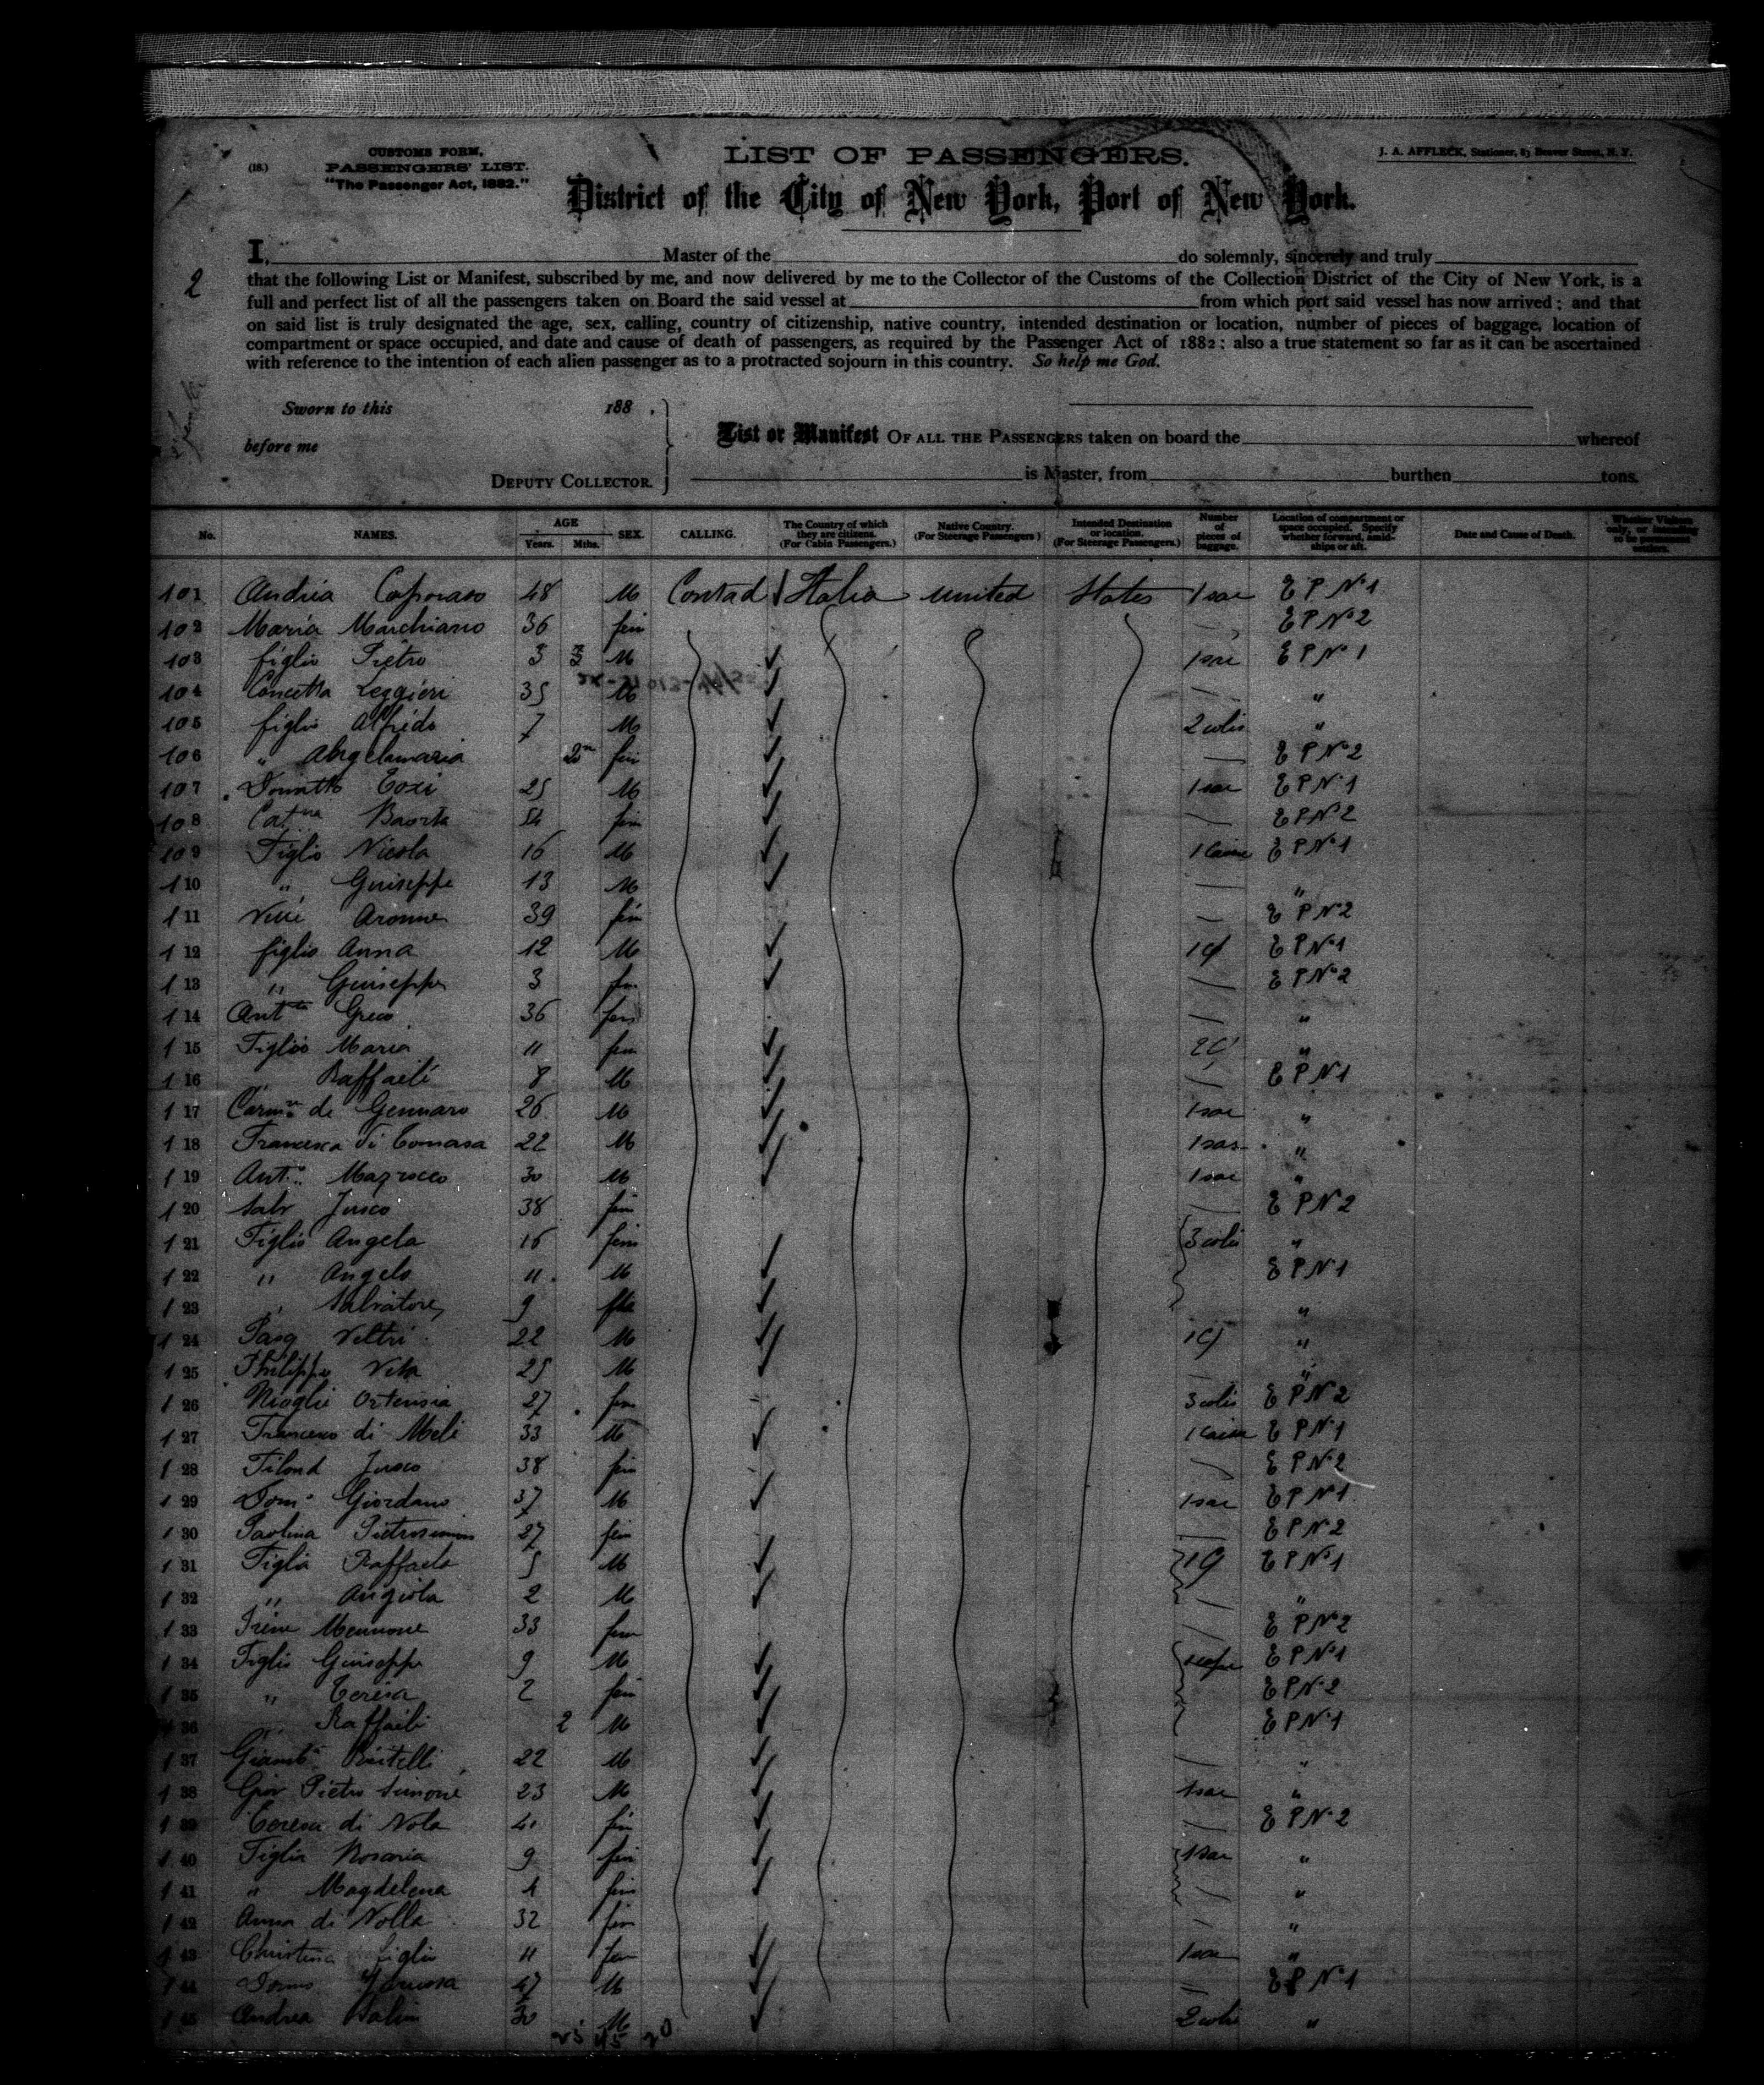 (18.)
CUSTOMS FORM,
PASSENGERS' LIST.
"The Passenger Act, 1882."
LIST OF PASSENGERS.
J. A. AFFLECK, Stationer, 83 Beaver Street, N. Y.
District of the City of New York, Port of New York.
2
I, Master of the do solemnly, sincerely and truly
that the following List or Manifest, subscribed by me, and now delivered by me to the Collector of the Customs of the Collection District of the City of New York, is a
full and perfect list of all the passengers taken on Board the said vessel at from which port said vessel has now arrived; and that
on said list is truly designated the age, sex, calling, country of citizenship, native country, intended destination or location, number of pieces of baggage, location of
compartment or space occupied, and date and cause of death of passengers, as required by the Passenger Act of 1882; also a true statement so far as it can be ascertained
with reference to the intention of each alien passenger as to a protracted sojourn in this country. So help me God.
Sworn to this 188 .
before me
DEPUTY COLLECTOR.
List or Manifest OF ALL THE PASSENGERS taken on board the whereof
is Master, from burthen tons.
No. NAMES. AGE Years. Mths. SEX. CALLING. The Country of which they are citizens. (For Cabin Passengers.) Native Country. (For Steerage Passengers.) Intended Destination or location. (For Steerage Passengers.) Number of pieces of baggage. Location of compartment or space occupied. Specify whether forward, amidships or aft. Date and Cause of Death. Whether Visitors only, or intending to be permanent settlers.
101 Andria Caporaso 48 M Contad Italia united States 1 sac E P No 1
102 Maria Marchiano 36 fem E P No 2
103 figlio Pietro 3 M E P No 1
104 Concetta Leggieri 35 M "
105 figlio Alfredo 7 M 2 colis "
106 " Angelamaria fem E P No 2
107 Donatto Tozi 25 M 1 sac E P No 1
108 fem E P No 2
109 Figlio Nicola 16 M E P No 1
110 " Guiseppe 13 M "
111 39 fem E P No 2
112 figlio Anna 12 M E P No 1
113 " Guiseppe 3 fem E P No 2
114 Greco 36 fem "
115 Figlio Maria 11 fem "
116 " Raffaeli 8 M E P No 1
117 de Gennaro 26 M 1 sac "
118 Francesca di Tomasa 22 M 1 sac "
119 Ant. 30 M 1 sac "
120 Salv Jusco 38 fem E P No 2
121 Figlio Angela 16 fem 3 colis "
122 " Angelo 11 M E P No 1
123 " Salvatore 9 "
124 Pasq Veltri 22 M "
125 Philippo Vita 25 M "
126 Ortensia 27 fem 3 colis E P No 2
127 Francesco di Meli 33 M E P No 1
128 Jusco 38 fem E P No 2
129 Dom. Giordano 37 M 1 sac E P No 1
130 Paolina 27 fem E P No 2
131 Figlia Raffaela 5 M E P No 1
132 " Angiola 2 M "
133 Irene Mennone 33 fem E P No 2
134 Figlio Guiseppe 9 M E P No 1
135 " Teresa 2 fem E P No 2
136 " Raffaeli 2 M E P No 1
137 22 M "
138 Giov Pietro Simone 23 M 1 sac "
139 Teresa di Nola fem E P No 2
140 Figlia Rosaria 9 fem 1 sac "
141 " Magdelena 4 fem "
142 Anna di Nolla 32 fem "
143 Christina figlia 11 fem 1 sac "
144 47 M E P No 1
145 Andrea 30 M 2 colis "